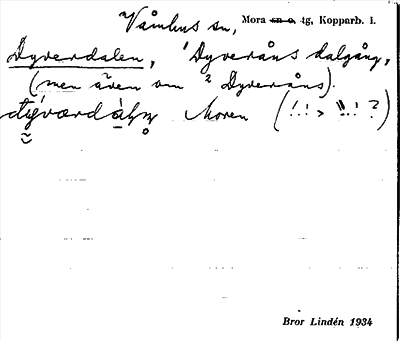 Våmhus sn, Mora sn o. tg, Kopparb. l.
Dyverdalen, 'Dyveråns dalgång,
(men även om ² Dyveråns).
Moren (!!> !!?)
Bror Lindén 1934